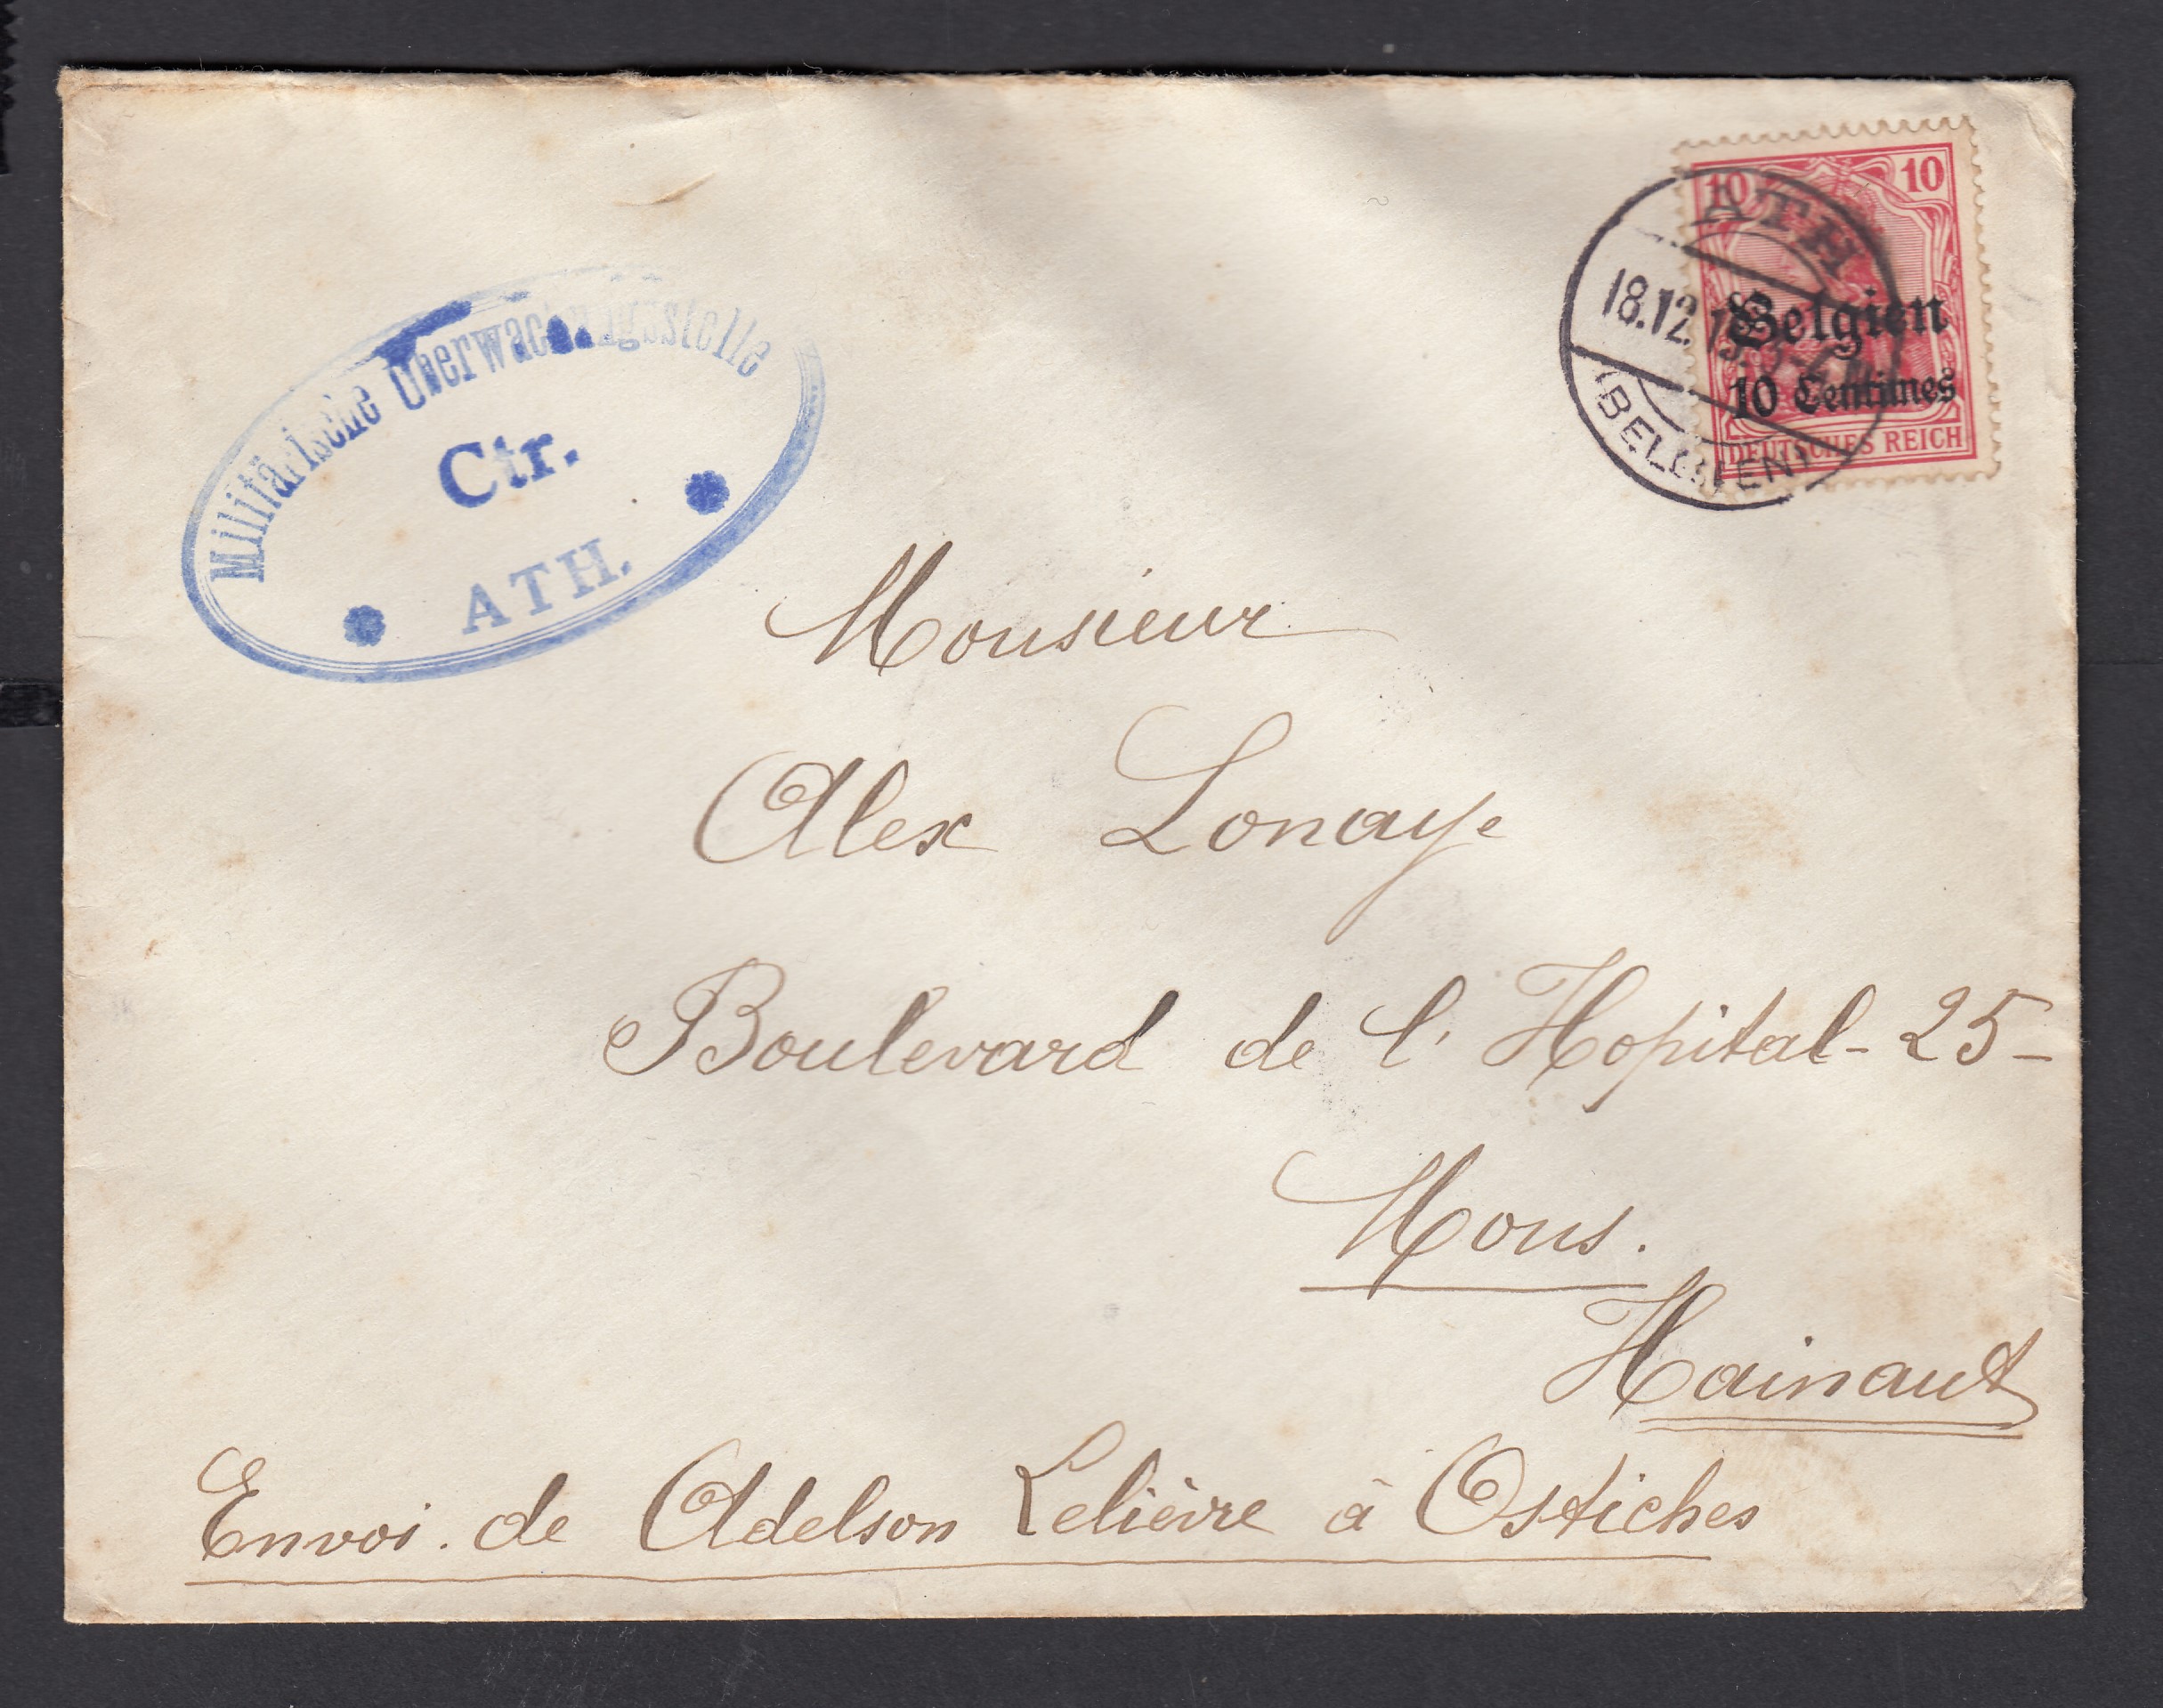 Militärische Überwachungsstelle
Ctr.
ATH.
10 10
Belgien
10 Centimes
DEUTSCHES REICH
ATH
18.12.
(BELGIEN)
Monsieur
Alex Lonaye
Boulevard de l'Hopital - 25 -
Mons.
Hainaut
Envoi. de Adelson Lelièvre à Ostiches